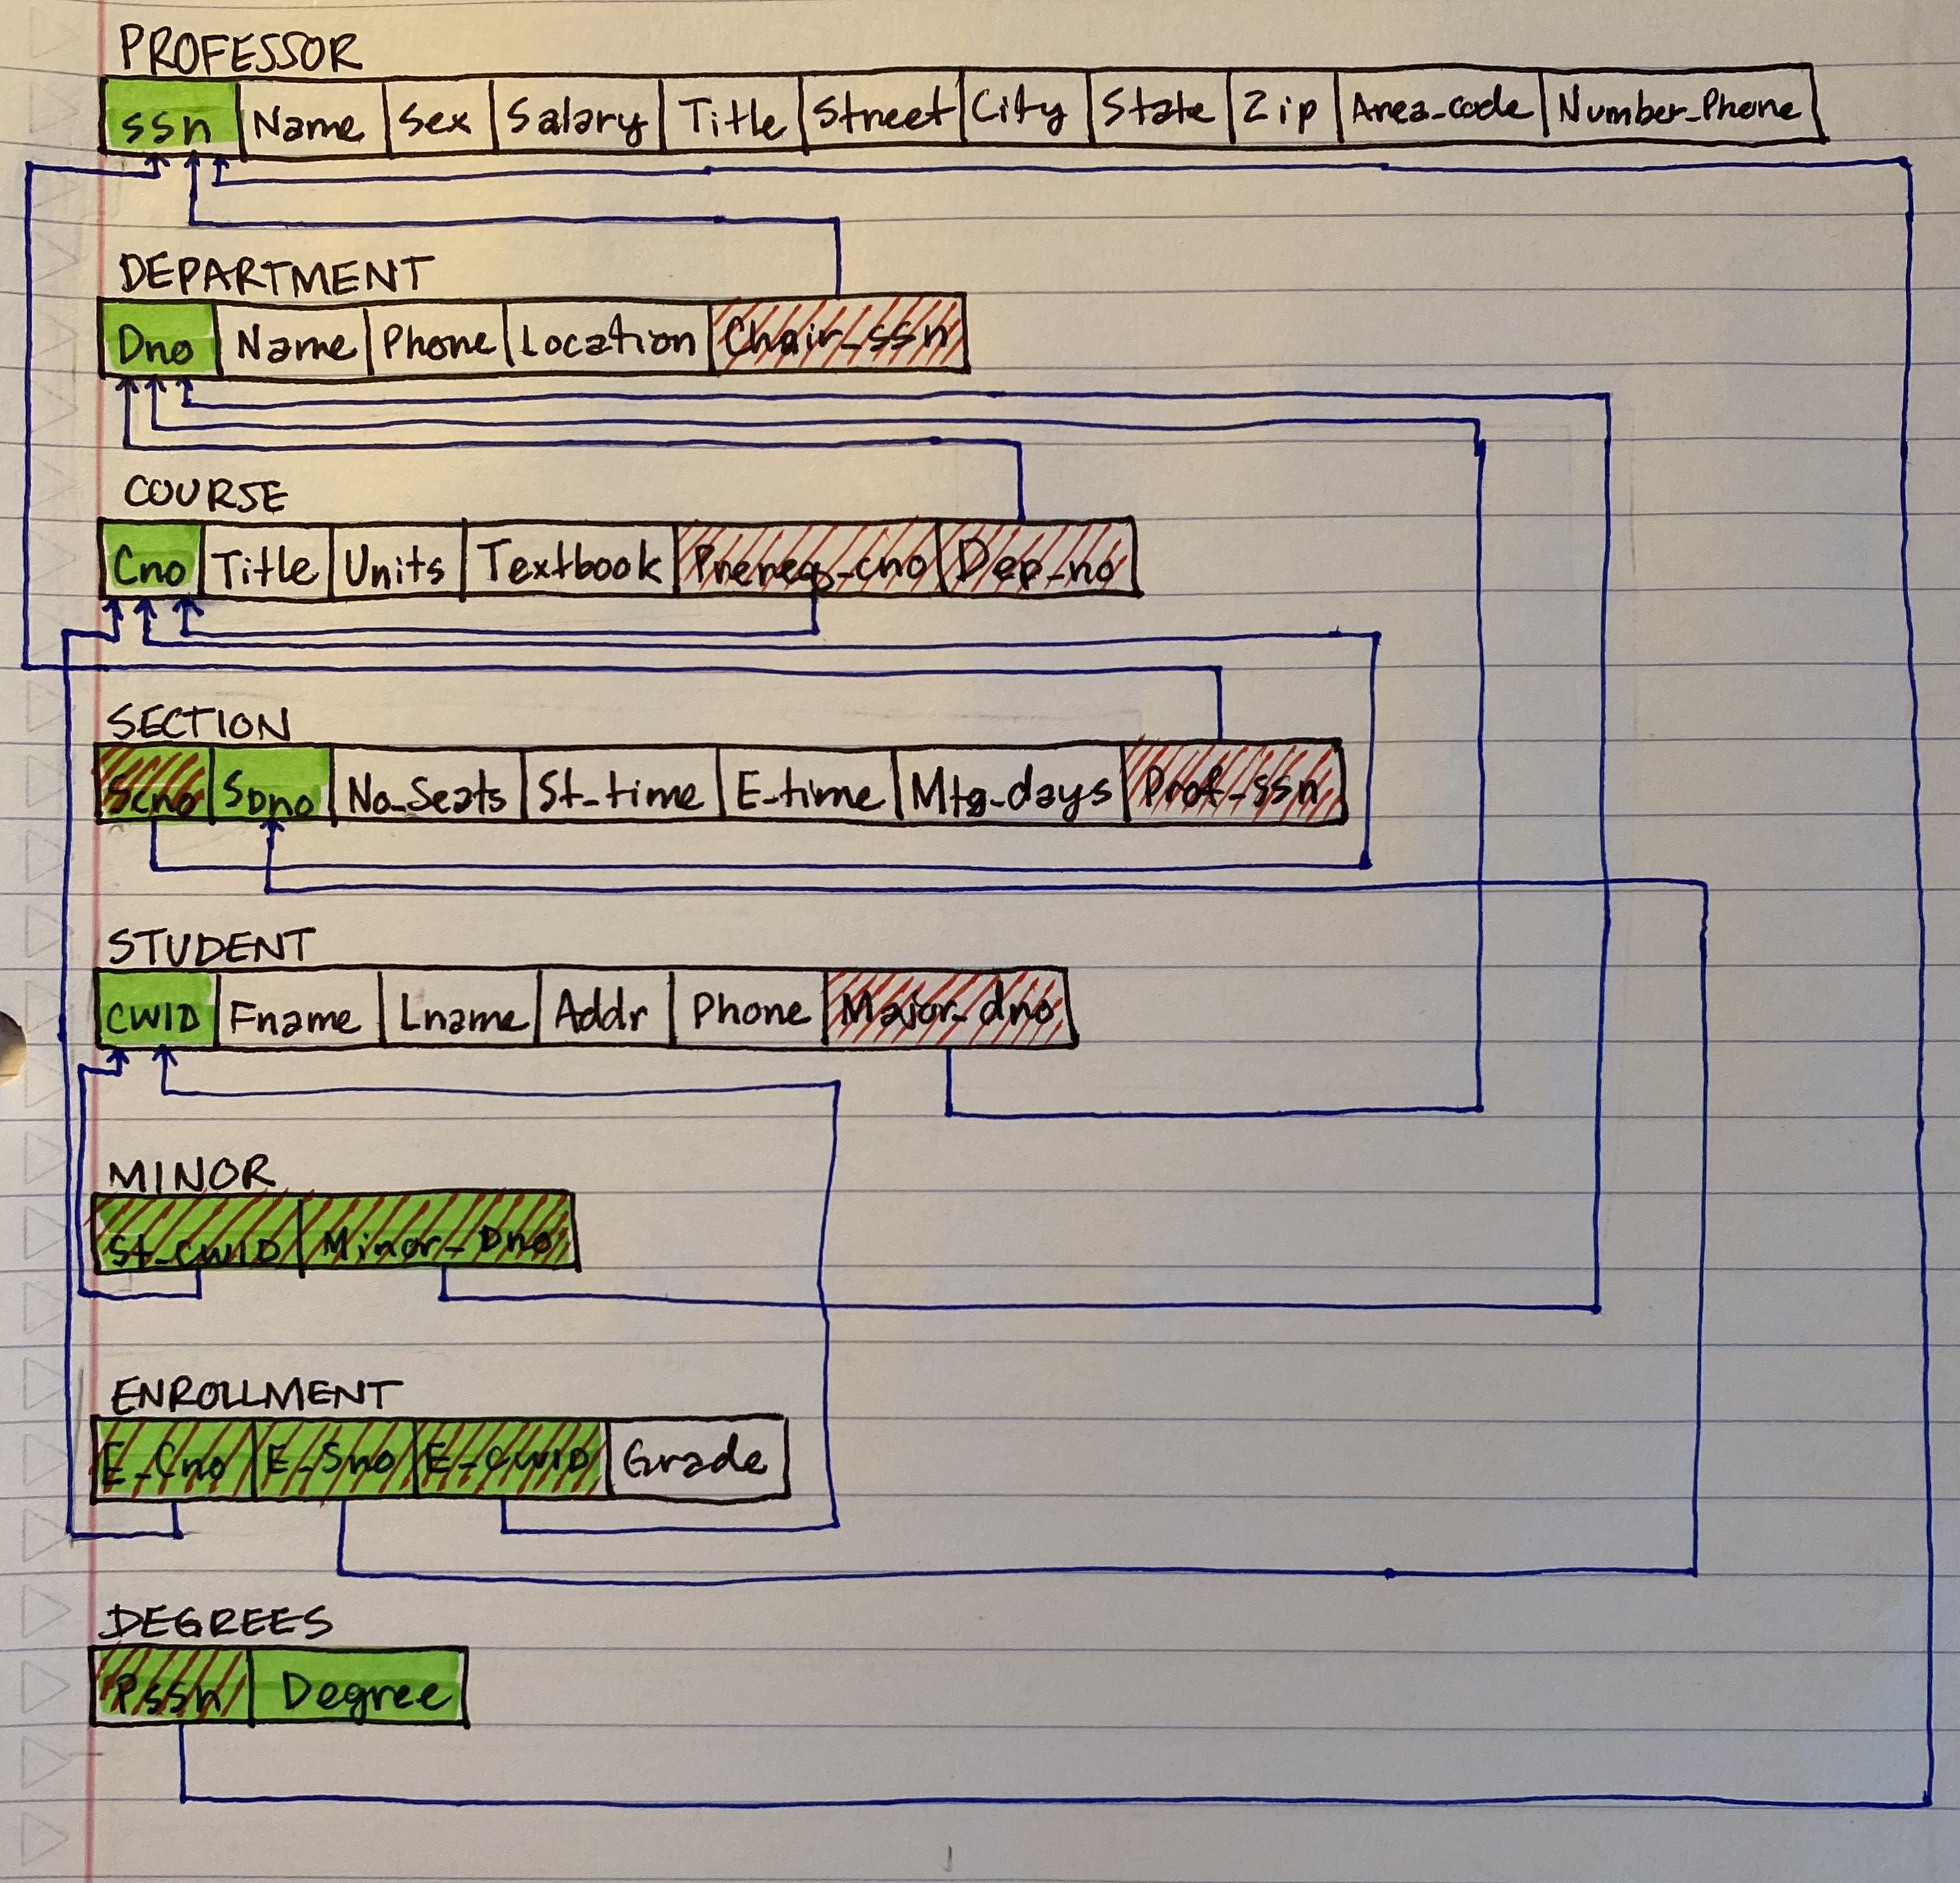 PROFESSOR
ssn Name Sex Salary Title Street City State Zip Area_code Number_Phone
DEPARTMENT
Dno Name Phone Location Chair_ssn
COURSE
Cno Title Units Textbook Prereq_cno Dep_no
SECTION
Scno SDno No_Seats St_time E_time Mtg_days Prof_ssn
STUDENT
CWID Fname Lname Addr Phone Major_dno
MINOR
St_CWID Minor_Dno
ENROLLMENT
E_Cno E_Sno E_CWID Grade
DEGREES
Pssn Degree